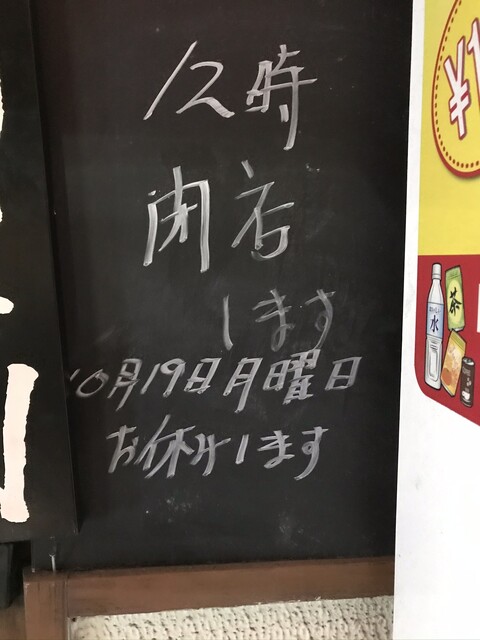 12時
閉店
します
10月19日月曜日
お休みします
¥1
茶
水